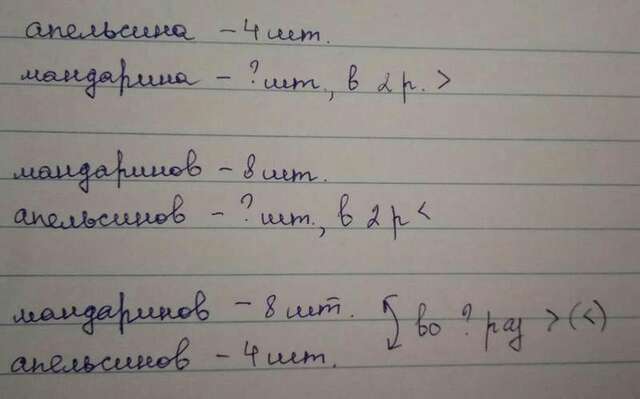 апельсина - 4 шт.
мандарина - ? шт., в 2 р. >
мандаринов - 8 шт.
апельсинов - ? шт., в 2 р <
мандаринов - 8 шт.
во ? раз > (<)
апельсинов - 4 шт.